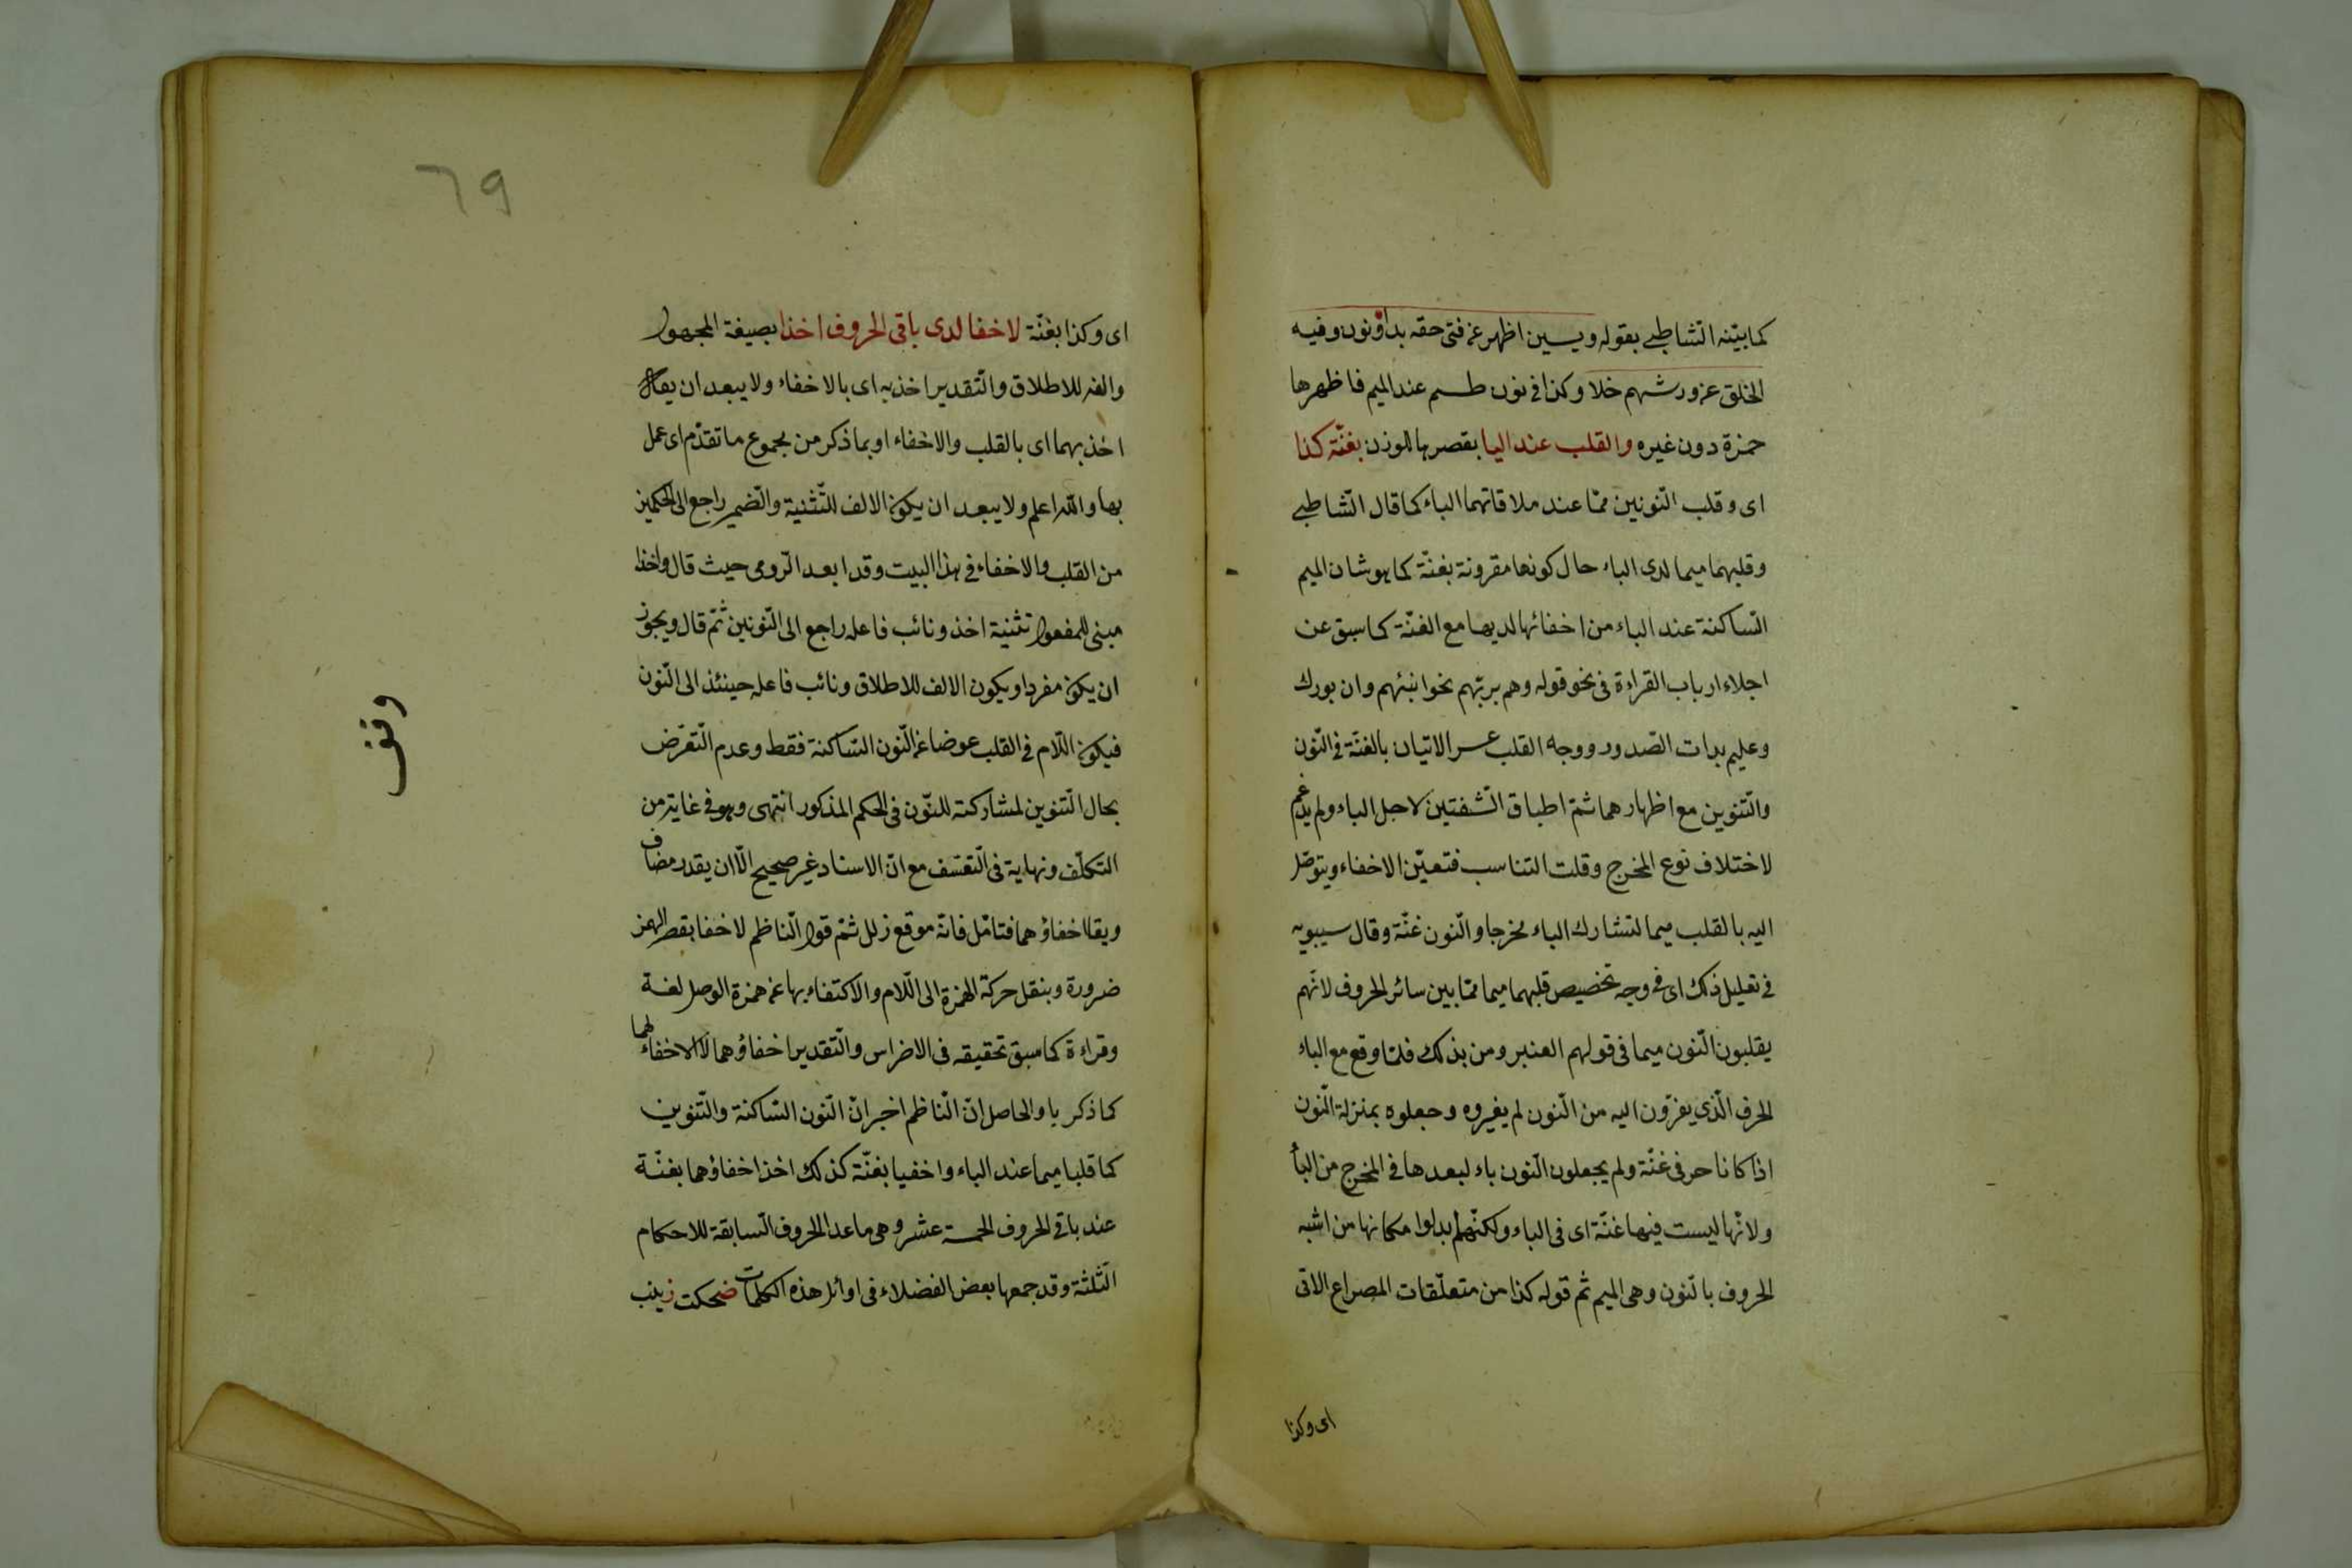 كما بيّنه الشاطبى بقوله ويسين اظهر عن فتى حقه بدا ونون وفيه
الخلق عن ورشهم خلا وكذا فى نون طسم عند الميم فاظهرها
حمزة دون غيره والقلب عند اليا بقصرها للوزن بغنّة كذا
اى وقلب النّونين ممّا عند ملاقاتهما الباء كما قال الشاطبى
وقلبهما ميما لدى الباء حال كونها مقرونة بغنّة كما هو شان الميم
السّاكنة عند الباء من اخفائها لديها مع الغنّة كما سبق عن
اجلاء ارباب القراءة فى نحو قوله وهم بربّهم نحو انبئهم وان بورك
وعليم بذات الصّدور ووجه القلب عسر الاتيان بالغنّة فى النّون
والتّنوين مع اظهارهما ثمّ اطباق الشّفتين لاجل الباء ولم يدغم
لاختلاف نوع المخرج وقلت التناسب فتعيّن الاخفاء ويتوصّل
اليه بالقلب ميما لتشارك الباء مخرجا والنّون غنّة وقال سيبويه
فى تعليل ذلك اى فى وجه تخصيص قلبهما ميما ممّا بين سائر الحروف لانّهم
يقلبون النّون ميما فى قولهم العنبر ومن بذلك فلمّا وقع مع الباء
الحرف الّذى يفرّون اليه من النّون لم يغيروه وجعلوه بمنزلة النّون
اذا كانا حرفى غنّة ولم يجعلون النّون باء لبعدها فى المخرج من البأ
ولانّها ليست فيها غنّة اى فى الباء ولكنّهم ابدلوا مكانها من اشبه
الحروف بالنّون وهى الميم ثم قوله كذا من متعلّقات المصراع الاتى
اى وكذا
٦٩
اى وكذا بغنّة لاخفا لدى باقى الحروف اخذا بصيغة المجهول
والفه للاطلاق والتّقدير اخذ به اى بالاخفاء ولا يبعد ان يقال
اخذ بهما اى بالقلب والاخفاء او بما ذكر من مجموع ما تقدّم اى عمل
بها والله اعلم ولا يبعد ان يكون الالف للتّثنية والضّمير راجع الى الحكمين
من القلب والاخفاء فى هذا البيت وقد ابعد الرّومى حيث قال واخذا
مبنى للمفعول تثنية اخذ ونائب فاعله راجع الى النّونين ثمّ قال ويجوز
ان يكون مفردا ويكون الالف للاطلاق ونائب فاعله حينئذ الى النّون
فيكون اللّام فى القلب عوضا عن النّون السّاكنة فقط وعدم التّعرّض
بحال التّنوين لمشاركته للنّون فى الحكم المذكور انتهى وهو فى غاية من
التكلّف ونهاية فى التّعسّف مع انّ الاسناد غير صحيح الّا ان يقدر مضاف
ويقال اخفاؤهما فتامّل فانّه موقع زلل ثمّ قول النّاظم لاخفا بقصر الهمز
ضرورة وبنقل حركة الهمزة الى اللّام والاكتفاء بها عن همزة الوصل لغة
وقراءة كما سبق تحقيقه فى الاضراس والتّقدير اخفاؤهما لا الاخفاء لهما
كما ذكر با والحاصل انّ النّاظم اخبر انّ النّون السّاكنة والتّنوين
كما قلبا ميما عند الباء واخفيا بغنّة كذلك اخذ اخفاؤهما بغنّة
عند باقى الحروف الخمسة عشر وهى ما عدا الحروف السّابقة للاحكام
الثّلثة وقد جمعها بعض الفضلاء فى اوائل هذه الكلمات ضحكت زينب
وقف